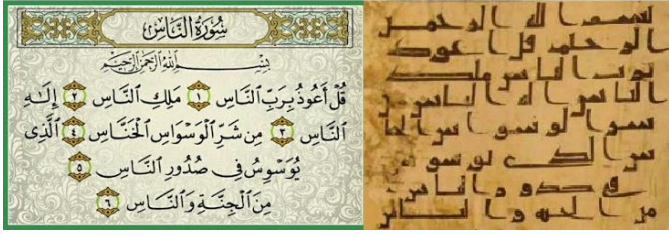 سُورَةُ النَّاسِ
بِسْمِ ٱللَّهِ ٱلرَّحْمَٰنِ ٱلرَّحِيمِ
قُلْ أَعُوذُ بِرَبِّ ٱلنَّاسِ ١ مَلِكِ ٱلنَّاسِ ٢ إِلَٰهِ
ٱلنَّاسِ ٣ مِن شَرِّ ٱلْوَسْوَاسِ ٱلْخَنَّاسِ ٤ ٱلَّذِى
يُوَسْوِسُ فِى صُدُورِ ٱلنَّاسِ ٥
مِنَ ٱلْجِنَّةِ وَٱلنَّاسِ ٦
بسم الله الرحمن
الرحيم قل اعوذ
برب الناس ملك
الناس اله الناس من
شر الوسواس الخنا
س الذي يوسوس
في صدور الناس
من الجنة والناس